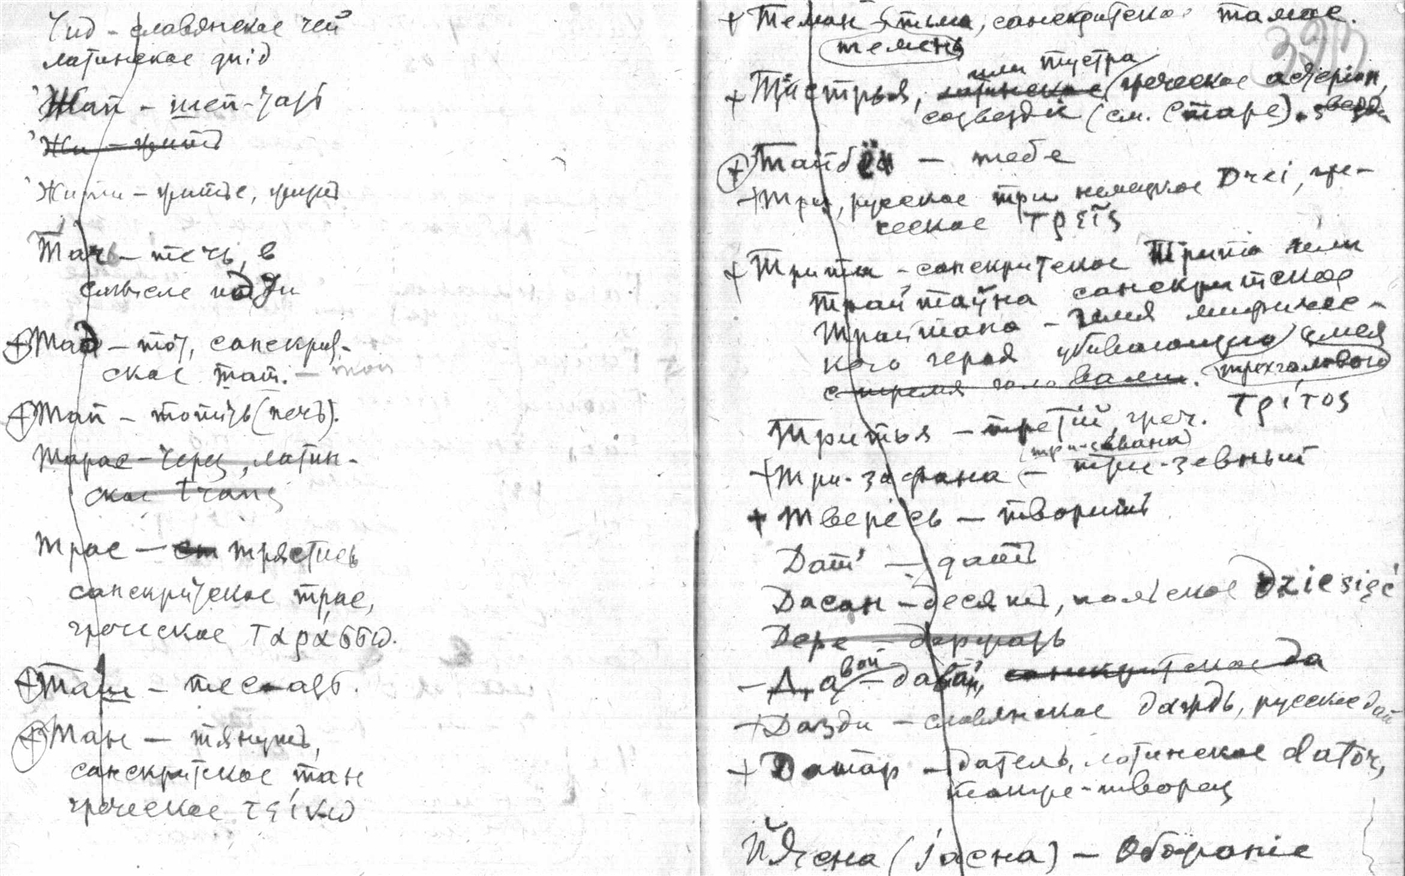 Чид - славянское чей
латинское quid
Жап - шеп-чать
Жи - жить
Жити - житье, жить
Тачь - течь, в
смысле пойди
Тад - тот, санскрит-
ское тат.
Тап - топить (печь).
Тарас - через, латин-
ское trans
Трас - трястись
санскритское трас,
греческое ταράσσω.
Таш - тесать.
Тан - тянуть,
санскритское тан
греческое τείνω
393
Теман тьма, санскритское тамас.
темень
или тустра
Тиштрья, латинское греческое
созвездие (см. Старе).
Тайбя - тебе
Три, русское три немецкое Drei, гре-
ческое τρεῖς
Трита - санскритское Трита или
Трайтауна санскритское
Траитана - имя мифичес-
кого героя убивающего змея
с тремя головами. трехголового
Тритья - третий, греч. τρίτος
(три-зевана)
Три-зафана - три-зевный
Твересь - творить
Дат - дать
Дасан - десять, польское Dziesięć
Дере - держать
вой
Да - давай, санскритское да
Дазди - славянское даждь, русское дай
Датар - датель, латинское dator,
также - творец
Йясна (jасна) - Обожание